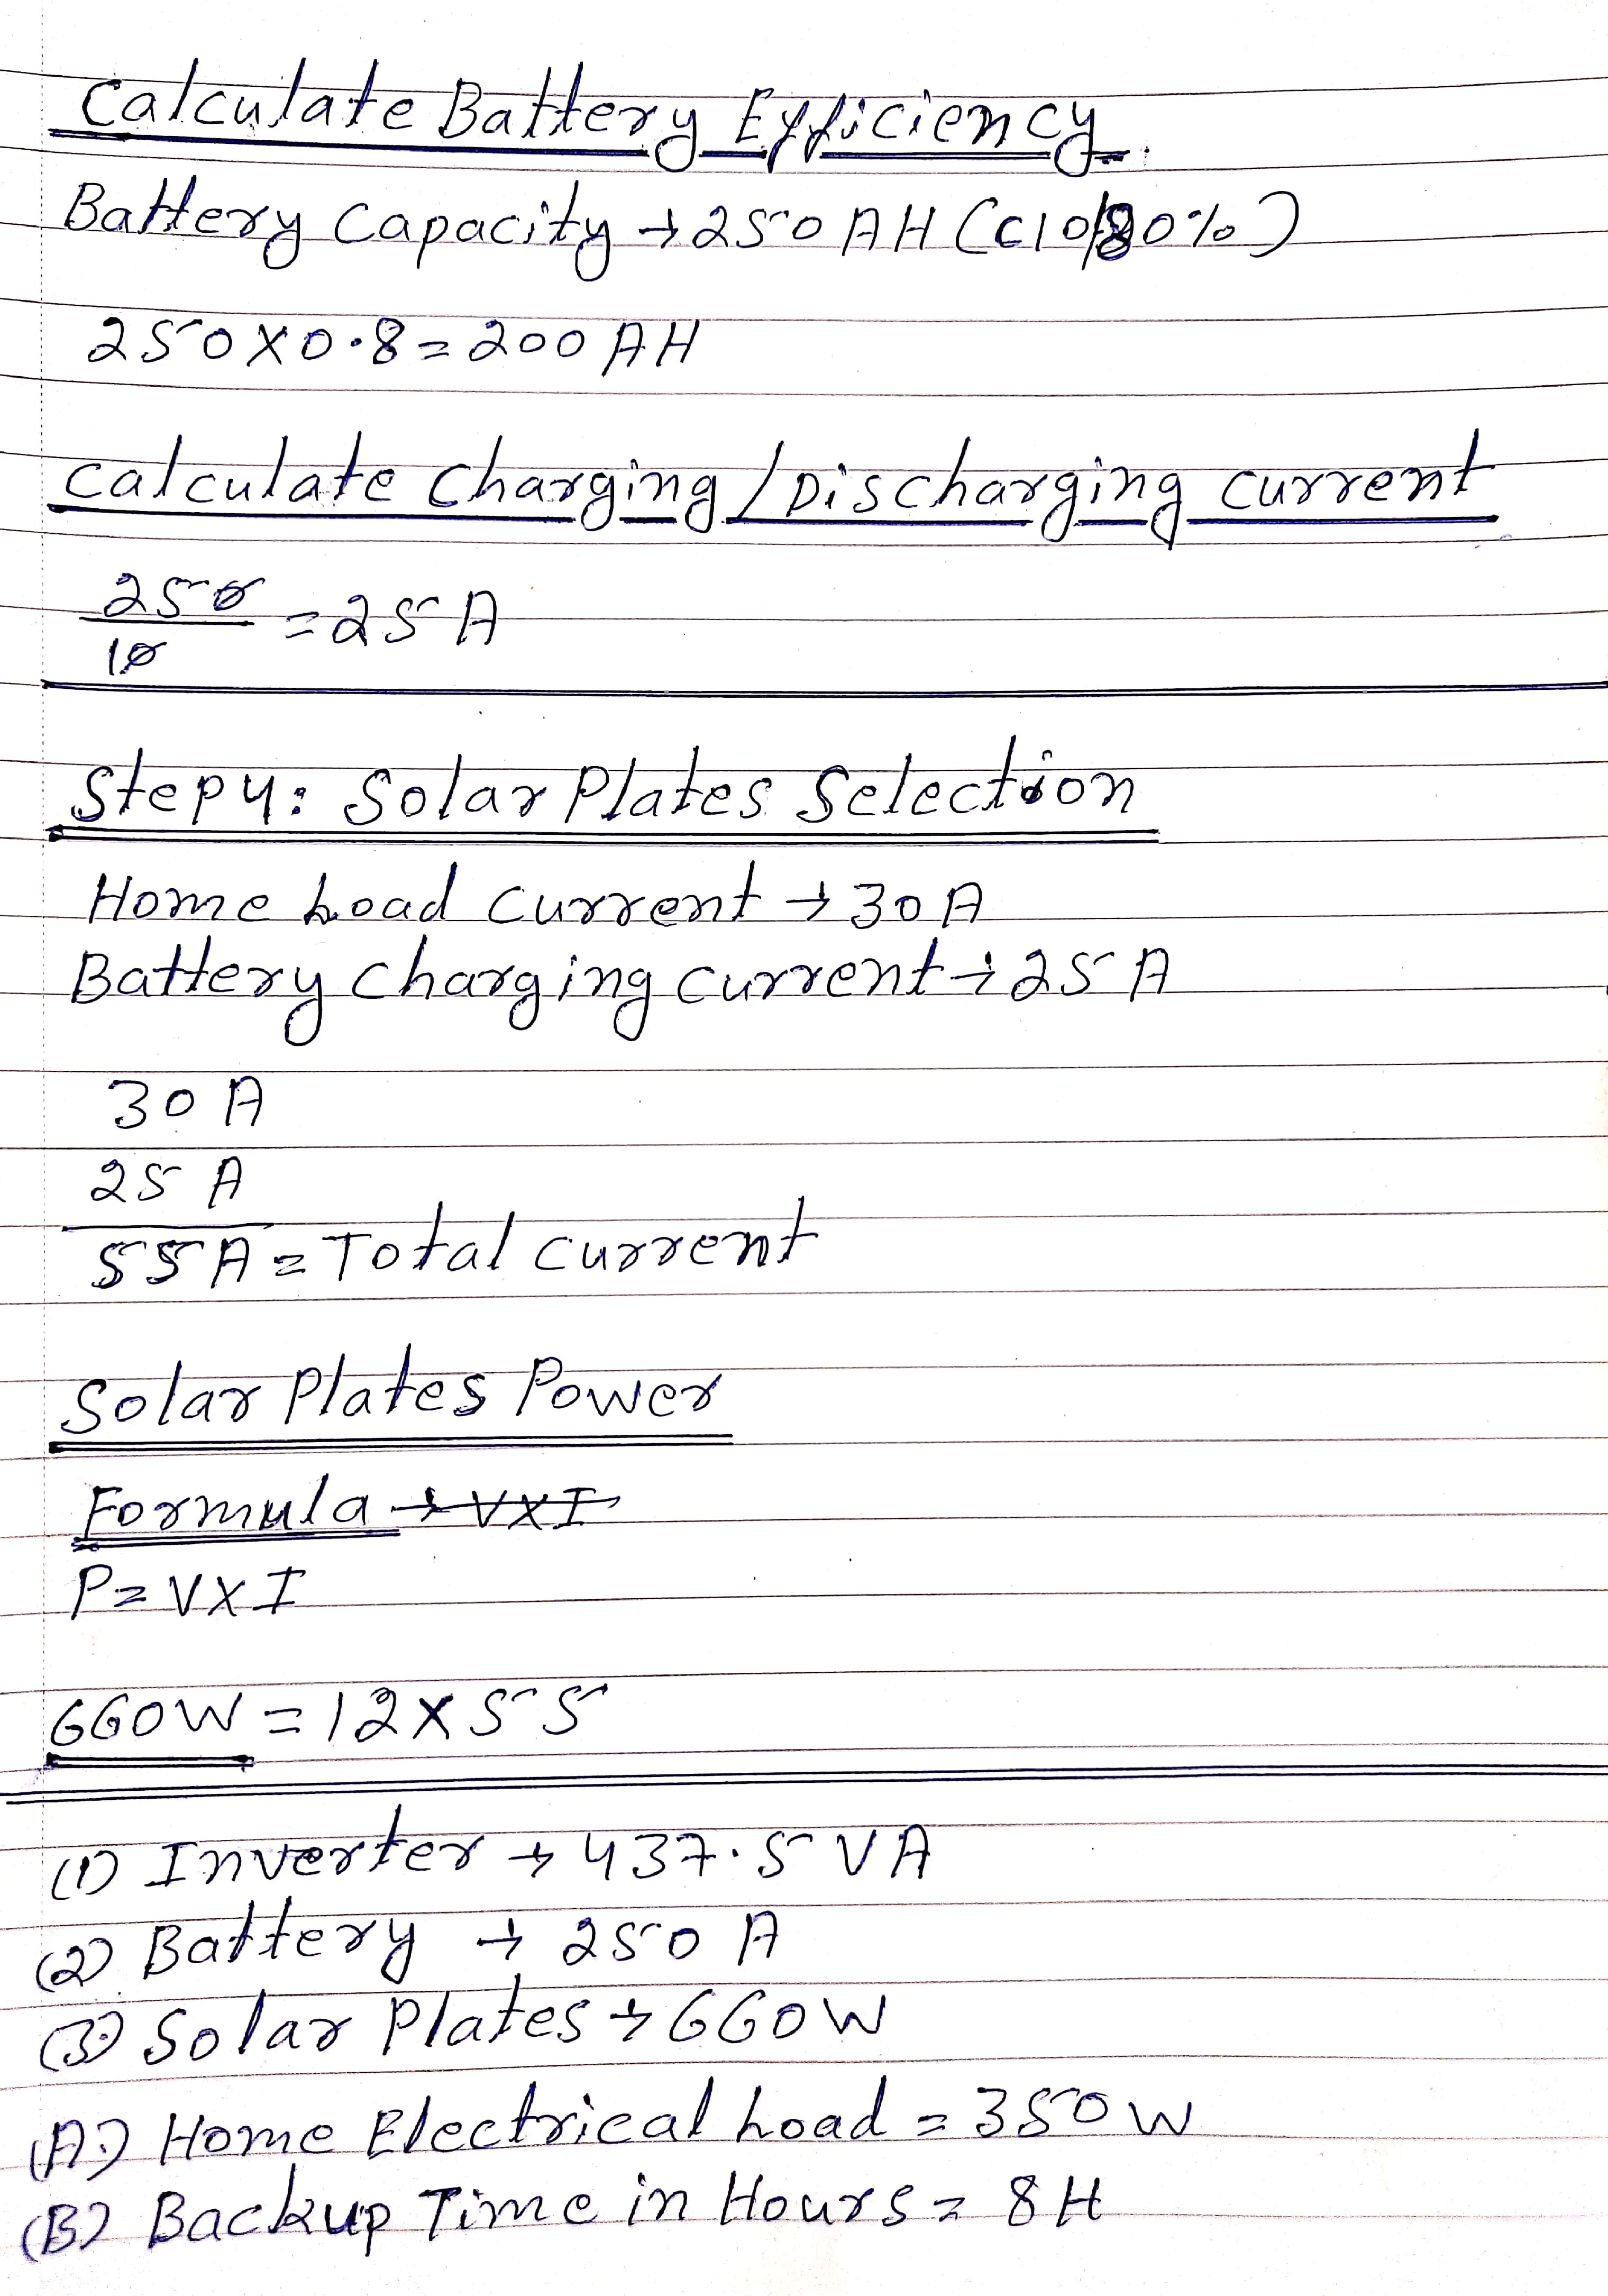 Calculate Battery Efficiency.
Battery Capacity → 250 AH (C10/80%)
250 X 0.8 = 200 AH
Calculate Charging / Discharging Current
250
10
= 25 A
Step 4: Solar Plates Selection
Home Load Current → 30 A
Battery Charging Current → 25 A
30 A
25 A
55 A = Total Current
Solar Plates Power
Formula → VXI
P = V X I
660W = 12 X 55
(1) Inverter → 437.5 VA
(2) Battery → 250 A
(3) Solar Plates → 660W
(A) Home Electrical Load = 350 W
(B) Backup Time in Hours = 8H